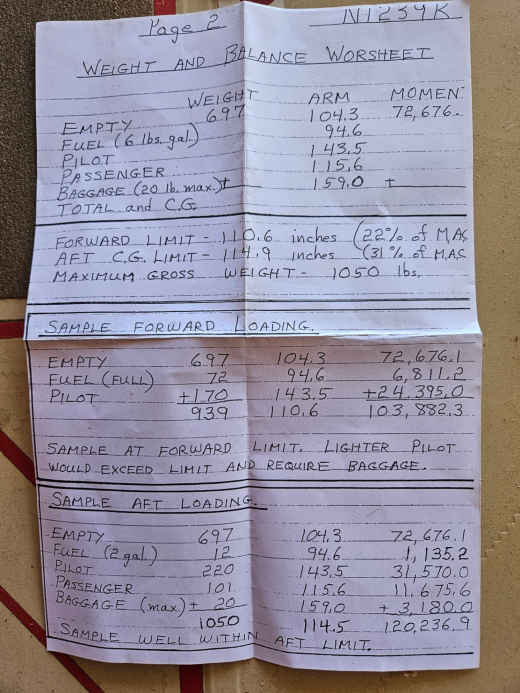 Page 2 N1239K
WEIGHT AND BALANCE WORSHEET
WEIGHT ARM MOMEN
EMPTY 697 104.3 72,676.
FUEL (6 lbs. gal.) 94.6
PILOT 143.5
PASSENGER 115.6
BAGGAGE (20 lb. max.)+ 159.0 +
TOTAL and C.G.
FORWARD LIMIT - 110.6 inches (22% of MAC
AFT C.G. LIMIT - 114.9 inches (31% of MAC
MAXIMUM GROSS WEIGHT - 1050 lbs.
SAMPLE FORWARD LOADING.
EMPTY 697 104.3 72,676.1
FUEL (FULL) 72 94.6 6,811.2
PILOT +170 143.5 +24,395.0
939 110.6 103,882.3
SAMPLE AT FORWARD LIMIT. LIGHTER PILOT
WOULD EXCEED LIMIT AND REQUIRE BAGGAGE.
SAMPLE AFT LOADING.
EMPTY 697 104.3 72,676.1
FUEL (2 gal.) 12 94.6 1,135.2
PILOT 220 143.5 31,570.0
PASSENGER 101 115.6 11,675.6
BAGGAGE (max) + 20 159.0 + 3,180.0
1050 114.5 120,236.9
SAMPLE WELL WITHIN AFT LIMIT.